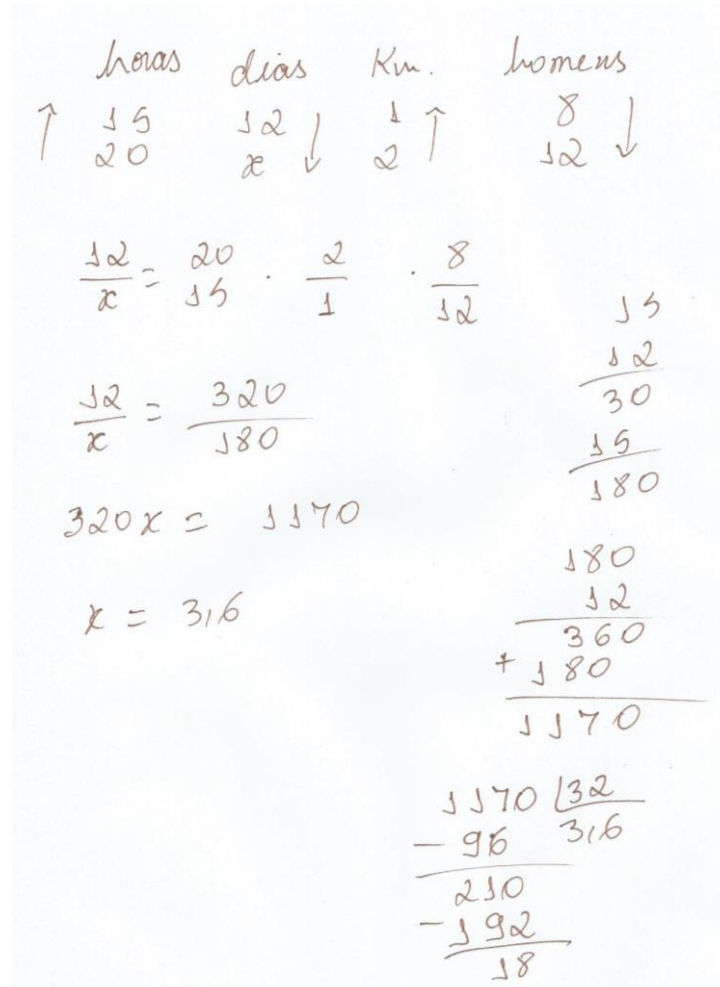 horas dias Km. homens
↑ 15 12 ↓ 1 ↑ 8 ↓
20 x 2 12
12/x = 20/15 . 2/1 . 8/12
12/x = 320/180
320x = 1170
x = 3,6
15
12
30
15
180
180
12
360
+ 180
1170
1170 | 32
- 96 3,6
210
- 192
18